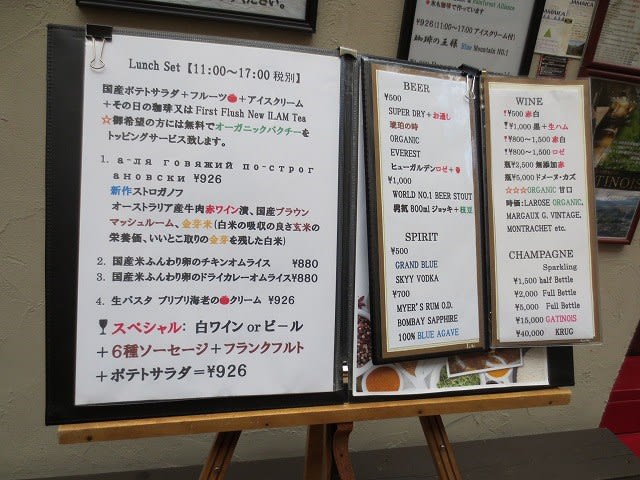 ください。
Rainforest Alliance
*氷も珈琲で作っています
¥926(11:00~17:00 アイスクリーム付)
珈琲の王様 Blue Mountain NO.1
JAMAICA
Lunch Set【11:00~17:00 税別】
国産ポテトサラダ+フルーツ🍅+アイスクリーム
+その日の珈琲又は First Flush New ILAM Tea
☆御希望の方には無料でオーガニックパクチーを
トッピングサービス致します。
1. а-ля говяжий по-строг
ановски ¥926
新作ストロガノフ
オーストラリア産牛肉赤ワイン漬、国産ブラウン
マッシュルーム、金芽米(白米の吸収の良さ玄米の
栄養価、いいとこ取りの金芽を残した白米)
2. 国産米ふんわり卵のチキンオムライス ¥880
3. 国産米ふんわり卵のドライカレーオムライス¥880
4. 生パスタ プリプリ海老の🍅クリーム ¥926
スペシャル: 白ワイン or ビール
+6種ソーセージ+フランクフルト
+ポテトサラダ=¥926
BEER
¥500
SUPER DRY+お通し
琥珀の時
ORGANIC
EVEREST
ヒューガルデンロゼ+🍓
¥1,000
WORLD NO.1 BEER STOUT
男気 800ml ジョッキ+枝豆
SPIRIT
¥500
GRAND BLUE
SKYY VODKA
¥700
MYER'S RUM O.D.
BOMBAY SAPPHIRE
100% BLUE AGAVE
WINE
¥500 赤白
¥1,000 黒+生ハム
¥800~1,500 赤白
¥800~1,500 ロゼ
瓶¥2,500 無添加赤
瓶¥5,000 ドメーヌ・カズ
☆☆☆ORGANIC 甘口
時価:LAROSE ORGANIC,
MARGAUX G. VINTAGE,
MONTRACHET etc.
CHAMPAGNE
Sparkling
¥1,500 half Bottle
¥2,000 Full Bottle
¥5,000 Full Bottle
¥15,000 GATINOIS
¥40,000 KRUG